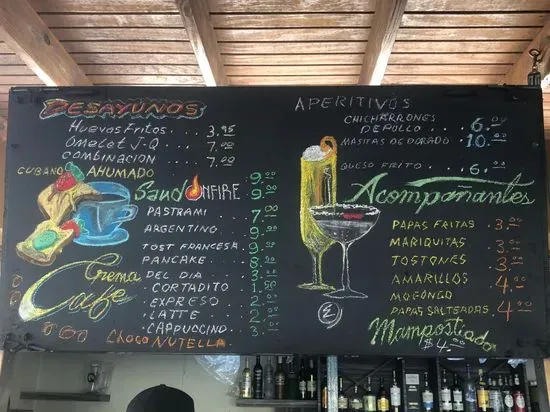 DESAYUNOS
Huevos Fritos . . . 3.95
Omelet J-Q . . . 7.00
COMBINACION . . . 7.00
CUBANO AHUMADO . . . 9.00
Sand ONFIRE . . . 9.
PASTRAMI . . . 7.00
ARGENTINO . . . 9.
TOST FRANCESA . . . 9.
PANCAKE . . . 8.
Crema Cafe
DEL DIA . . . 3.
CORTADITO . . . 1.
EXPRESO . . . 2.
LATTE . . . 2.
CAPPUCCINO . . . 3.
Choco NUTELLA
APERITIVOS
CHICHARRONES
DE POLLO . . . 6.00
MASITAS DE DORADO . 10.00
QUESO FRITO . . . 6.00
Acompañantes
PAPAS FRITAS . 3.00
MARIQUITAS . 3.00
TOSTONES . . . 3.00
AMARILLOS . . . 4.00
MOFONGO . . . 4.00
PAPAS SALTEADAS . 4.00
Mampostiado
$4.00